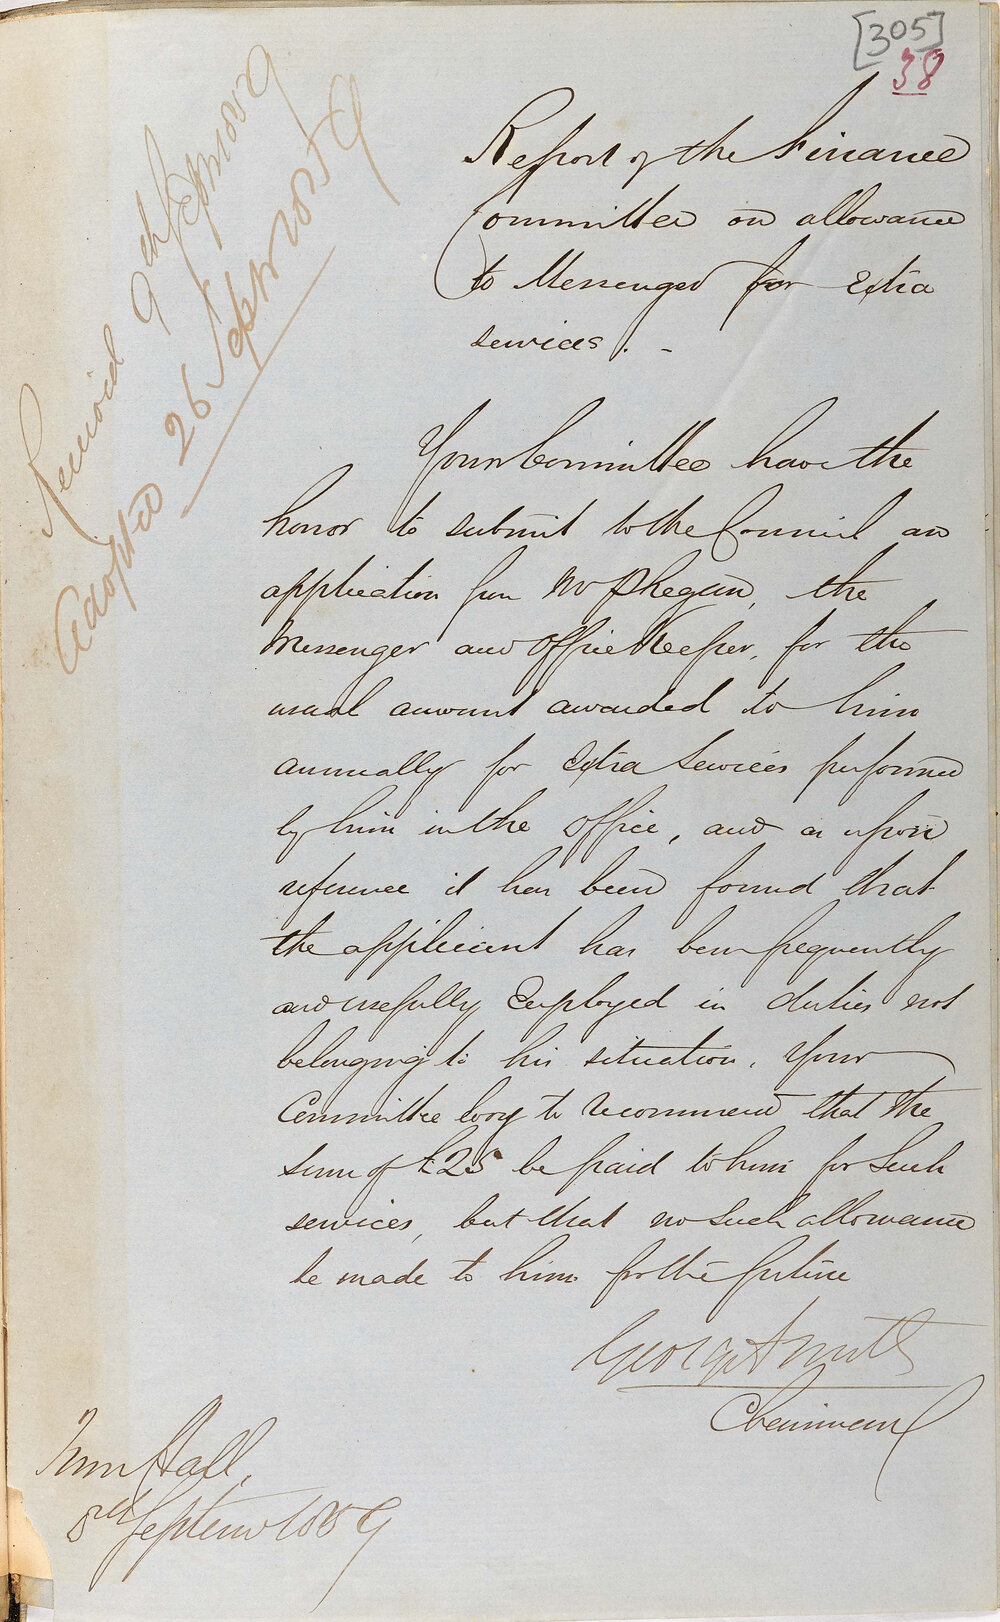 [305]
38
Received 9th Septr 1859
Adopted 26 Septr 1859
Report of the Finance
Committee on allowance
to Messenger for Extra
services. -
Your Committee have the
honor to submit to the Council an
application from Mr the
Messenger and Office Keeper, for the
usual amount awarded to him
annually for Extra Services performed
by him in the office, and as upon
reference it has been found that
the applicant has been frequently
and usefully Employed in duties not
belonging to his situation, Your
Committee beg to recommend that the
sum of £25 be paid to him for such
services, but that no such allowance
be made to him for the future
George Smith
Chairman
Town Hall,
8th Septemr 1859